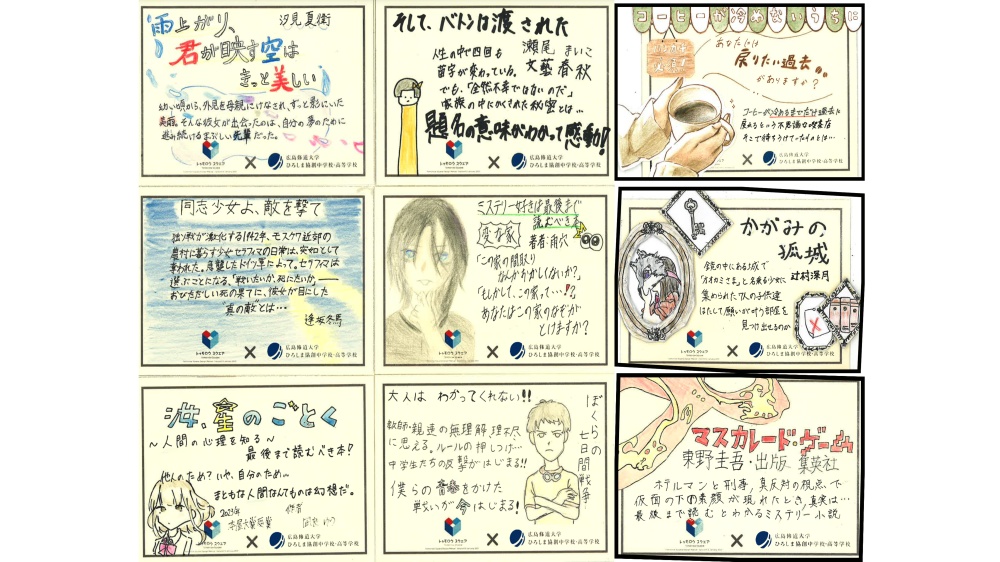 雨上がり、
汐見夏衛
君が映す空は
きっと美しい
幼い頃から、外見を母親にけなされ、ずっと影にいた
美雨。そんな彼女が出会ったのは、自分の夢のために
進み続けるまぶしい先輩だった。
トモロウ スクエア
×
広島修道大学
ひろしま協創中学校・高等学校
そして、バトンは渡された
人生の中で四回も
苗字が変わっている。
でも、「全然不幸ではないのだ」
家族の中にかくされた秘密とは…
瀬尾 まいこ
文藝春秋
題名の意味がわかって感動!!
×
広島修道大学
ひろしま協創中学校・高等学校
コーヒーが冷めないうちに
あなたには
戻りたい過去
がありますか?
コーヒーが冷めるまでだけ過去に
戻れるという不思議な喫茶店
そこで待ちうけていたものとは…
×
広島修道大学
ひろしま協創中学校・高等学校
同志少女よ、敵を撃て
独ソ戦が激化する1942年、モスクワ近郊の
農村に暮らす少女セラフィマの日常は、突如として
奪われた。急襲したドイツ軍によって。セラフィマは
選ぶことになる「戦いたいか、死にたいか」―
おびただしい死の果てに、彼女が目にした
"真の敵"とは…
逢坂冬馬
×
広島修道大学
ひろしま協創中学校・高等学校
ミステリー好きは最後まで
読むべき!
変な家
著者:雨穴
「この家の間取り
なんかおかしくないか?」
「もしかして、この家って…!?」
あなたはこの家のなぞが
とけますか?
×
広島修道大学
ひろしま協創中学校・高等学校
かがみの
孤城
辻村深月
鏡の中にある城で
「オオカミさま」と名乗る少女に
集められた7人の子供達
はたして願いが叶う部屋を
見つけ出せるのか
×
広島修道大学
ひろしま協創中学校・高等学校
汝、星のごとく
~人間の心理を知る~
最後まで読むべき本!
他人のため?いや、自分のため…
まともな人間なんてものは幻想だ。
2023年
本屋大賞受賞
作者
凪良 ゆう
×
広島修道大学
ひろしま協創中学校・高等学校
大人は わかってくれない!!
教師・親達の無理解、理不尽
に思える。ルールの押しつけ…
中学生たちの反撃がはじまる!!
僕らの をかけた
戦いが今はじまる!
ぼくらの
七日間戦争
×
広島修道大学
ひろしま協創中学校・高等学校
マスカレード・ゲーム
東野圭吾・出版 集英社
ホテルマンと刑事、真反対の視点で
仮面の下の素顔が現れたとき、真実は…
最後まで読むとわかるミステリー小説
×
広島修道大学
ひろしま協創中学校・高等学校